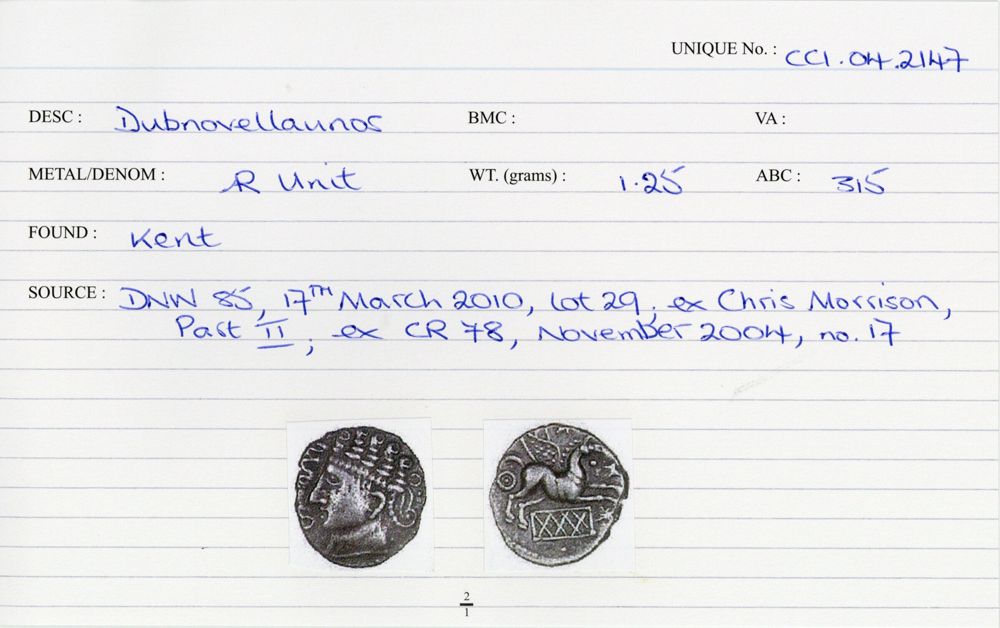 UNIQUE No. : CCI.04.2147
DESC : Dubnovellaunos BMC : VA :
METAL/DENOM : R Unit WT. (grams) : 1.25 ABC : 315
FOUND : Kent
SOURCE : DNW 85, 17TH March 2010, lot 29; ex Chris Morrison,
Part II; ex CR 78, November 2004, no. 17
2
1